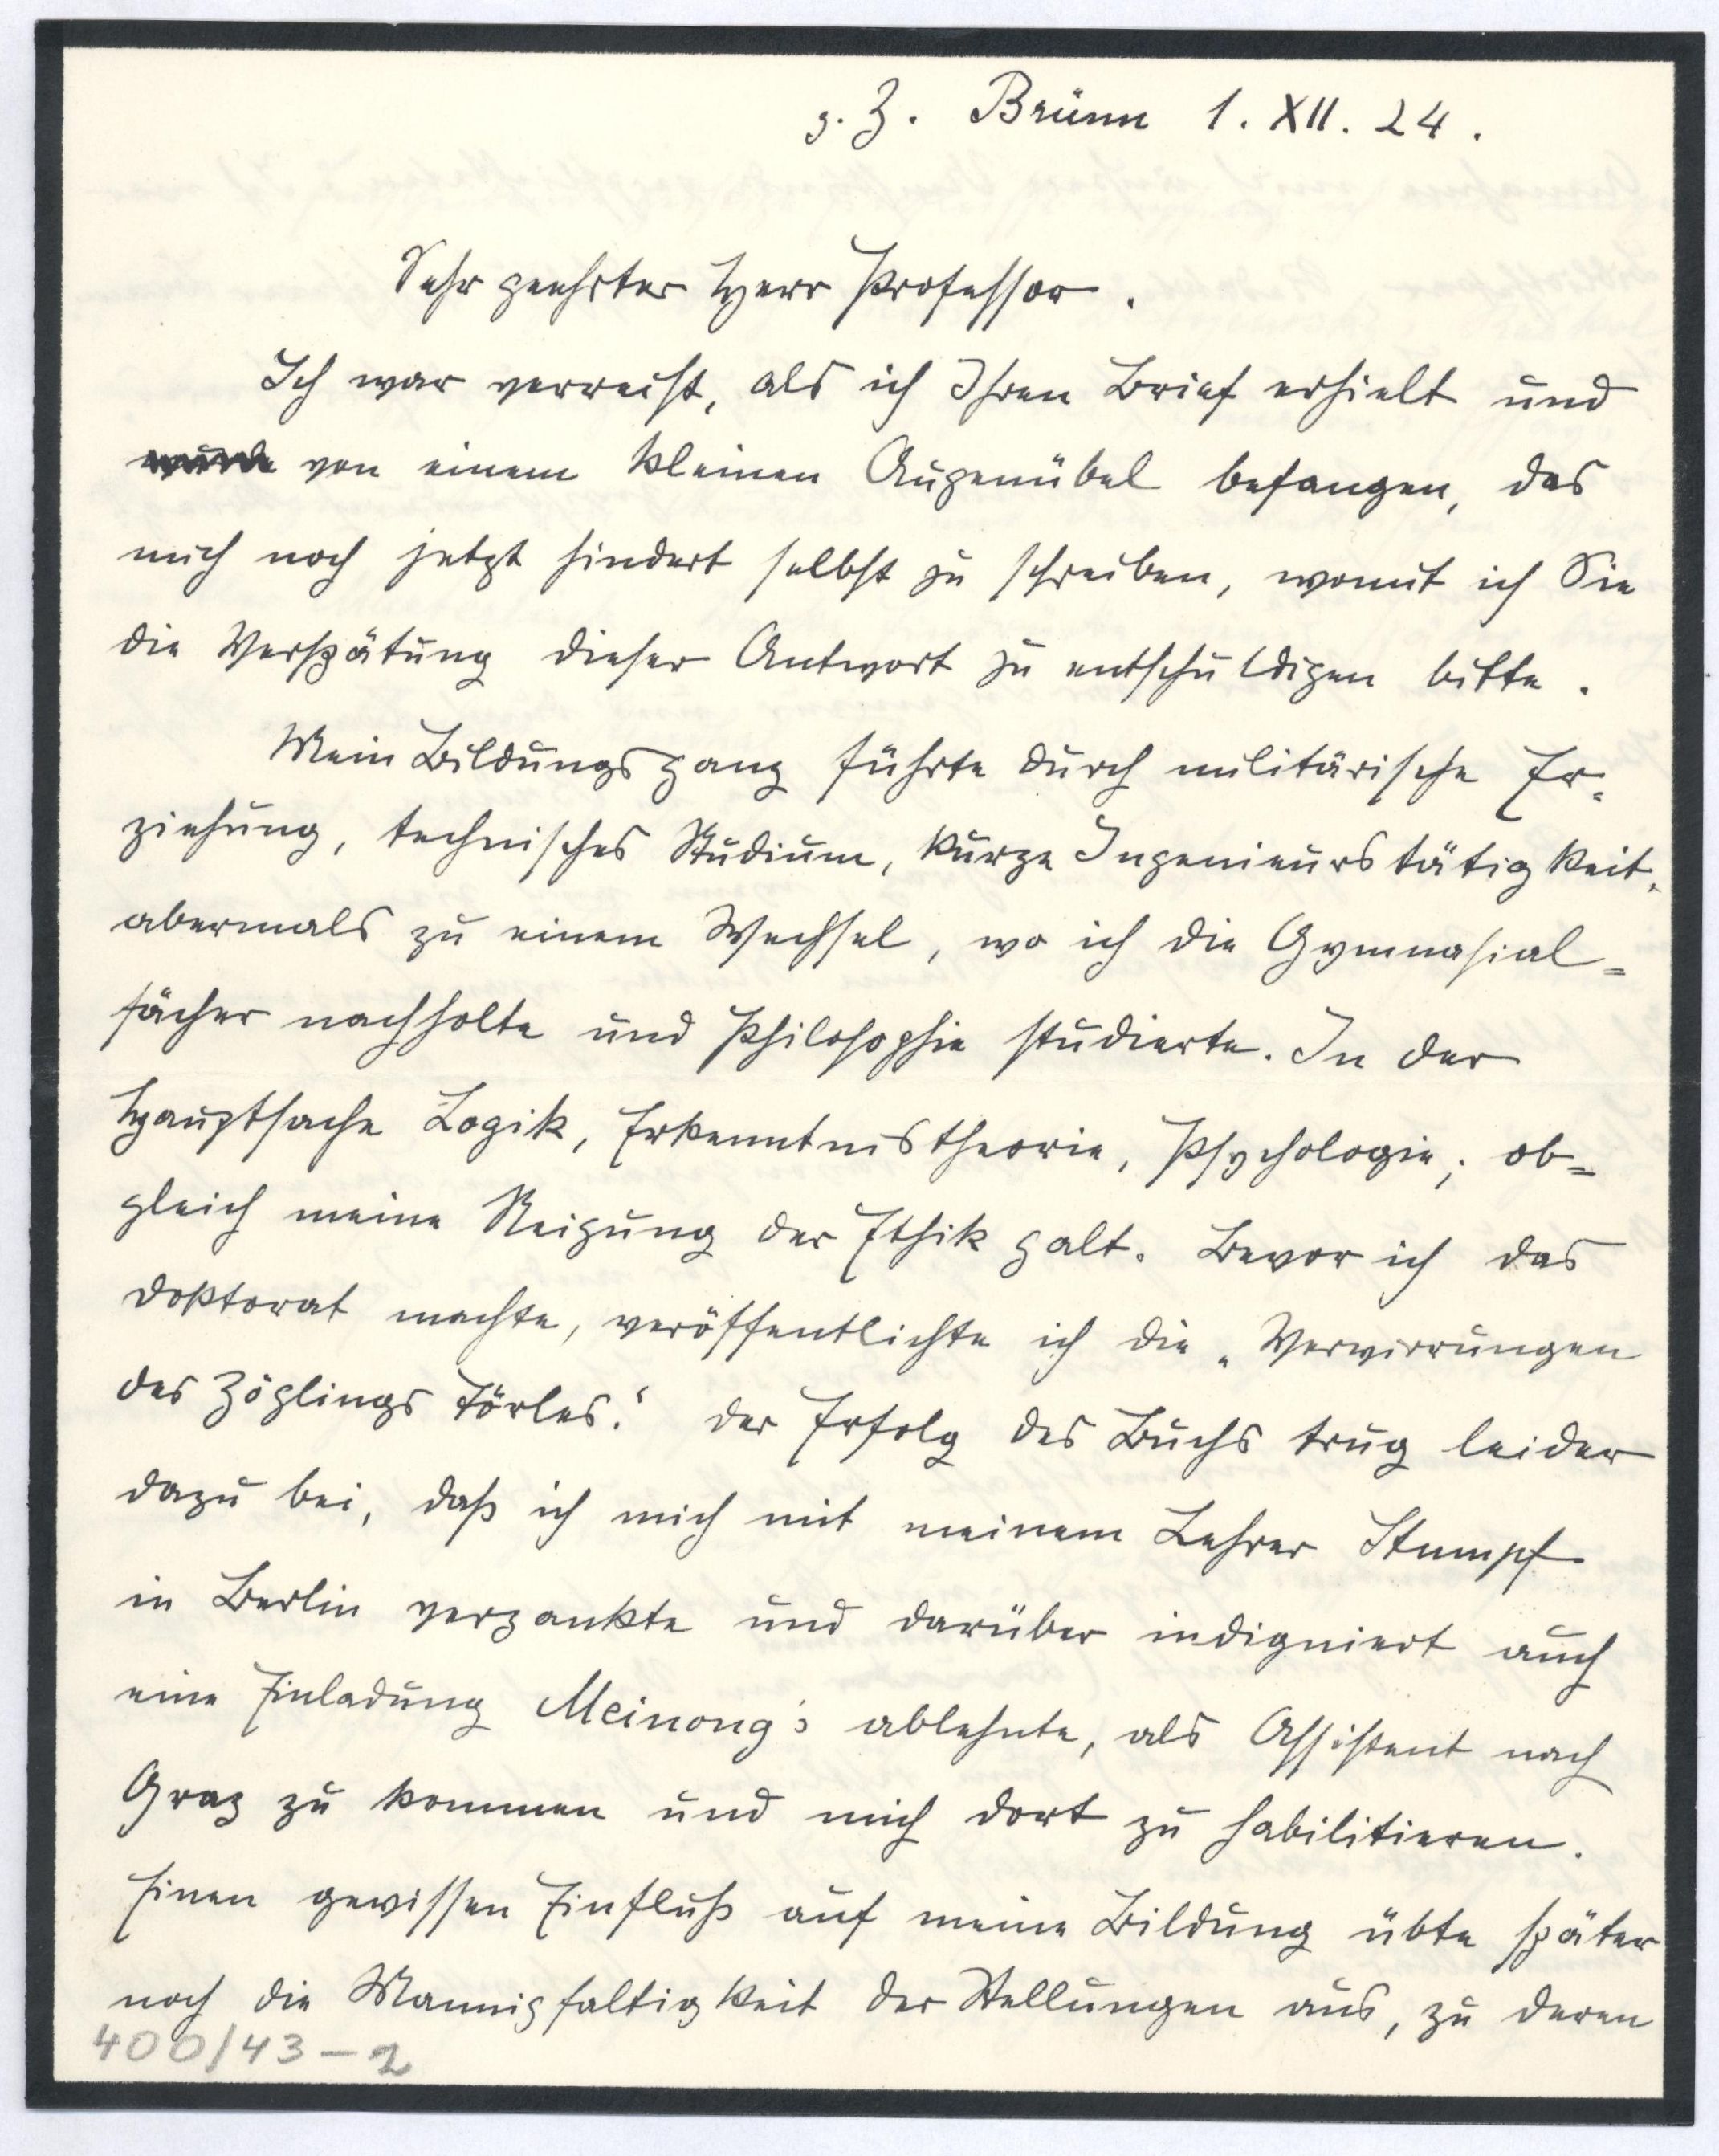 z. Z. Brünn 1. XII. 24.
Sehr geehrter Herr Professor.
Ich war verreist, als ich Ihren Brief erhielt und
von einem kleinen Augenübel befangen, das
mich noch jetzt hindert selbst zu schreiben, womit ich Sie
die Verspätung dieser Antwort zu entschuldigen bitte.
Mein Bildungsgang führte durch militärische Er=
ziehung, technisches Studium, kurze Ingenieurstätigkeit,
abermals zu einem Wechsel, wo ich die Gymnasial=
fächer nachholte und Philosophie studierte. In der
Hauptsache Logik, Erkenntnistheorie, Psychologie; ob=
gleich meine Neigung der Ethik galt. Bevor ich das
Doktorat machte, veröffentlichte ich die „Verwirrungen
des Zöglings Törles." Der Erfolg des Buchs trug leider
dazu bei, daß ich mich mit meinem Lehrer Stumpf
in Berlin verzankte und darüber indigniert auch
eine Einladung Meinong's ablehnte, als Assistent nach
Graz zu kommen und mich dort zu habilitieren.
Einen gewissen Einfluß auf meine Bildung übte später
noch die Mannigfaltigkeit der Stellungen aus, zu deren
400/43-2